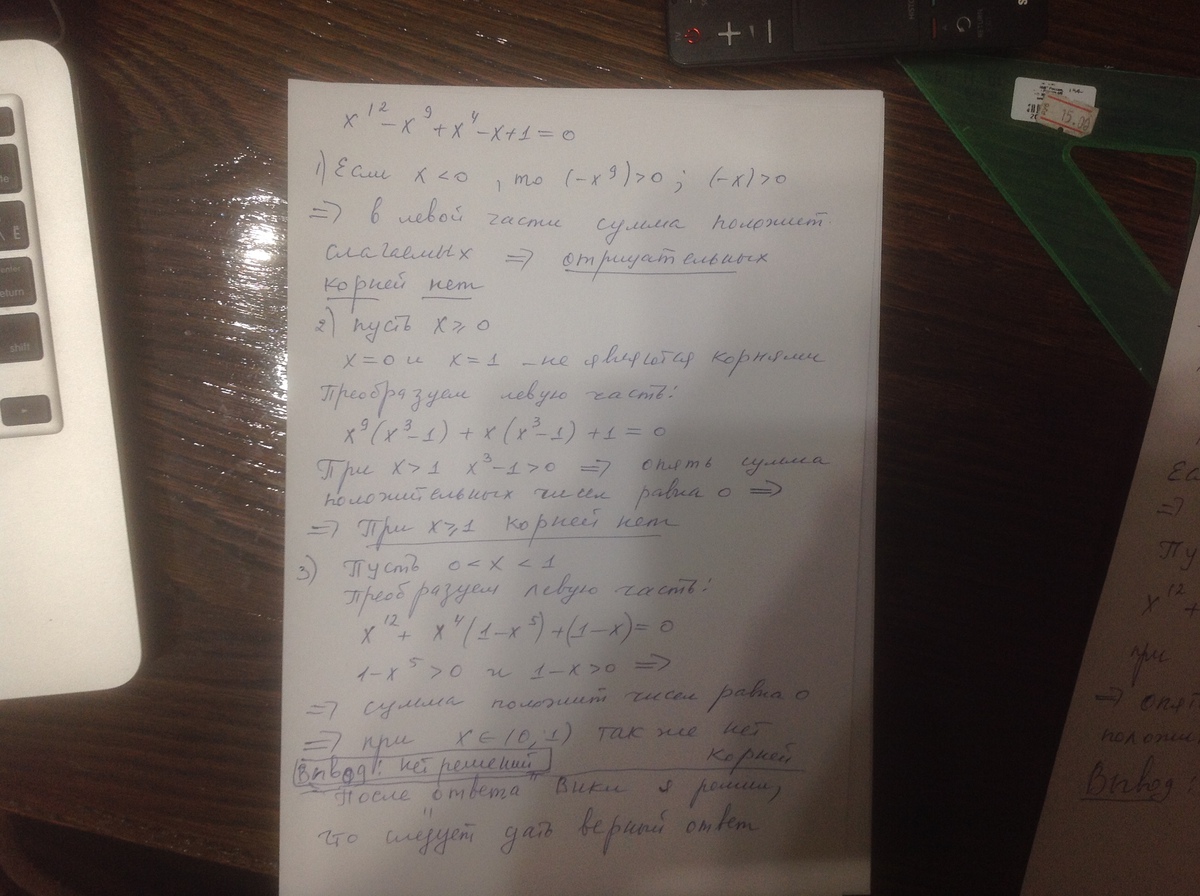 x¹² - x⁹ + x⁴ - x + 1 = 0
1) Если x < 0, то (-x⁹) > 0; (-x) > 0
=> в левой части сумма положит.
слагаемых => отрицательных
корней нет
2) пусть x ⩾ 0
x = 0 и x = 1 - не являются корнями
Преобразуем левую часть:
x⁹(x³-1) + x(x³-1) + 1 = 0
При x > 1 x³-1 > 0 => опять сумма
положительных чисел равна 0 =>
=> При x ⩾ 1 корней нет
3) Пусть 0 < x < 1
Преобразуем левую часть:
x¹² + x⁴(1-x⁵) + (1-x) = 0
1-x⁵ > 0 и 1-x > 0 =>
=> сумма положит чисел равна 0
=> при x ∈ (0; 1) так же нет
корней
Вывод: нет решений
После ответа "Вики" я решил,
что следует дать верный ответ
return
shift
15.00
Пу
x¹² +
при
=> опят
положи
Вывод